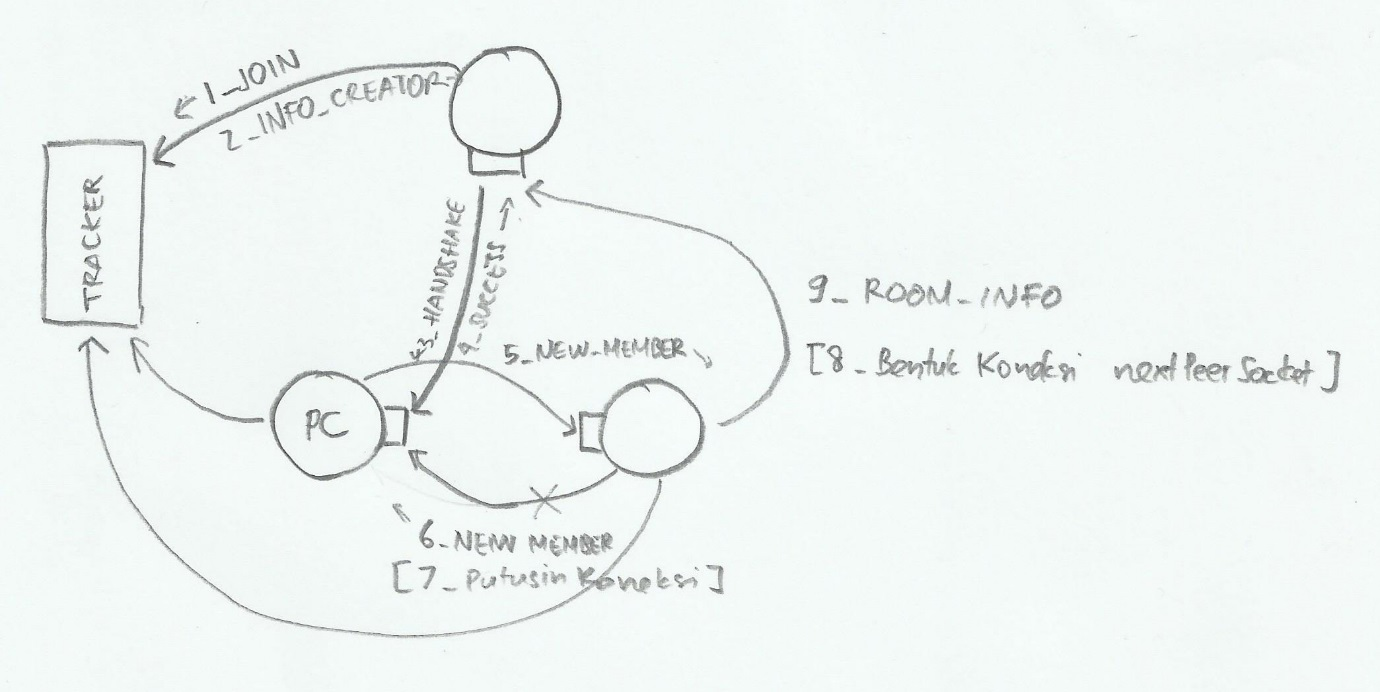 1_JOIN
2_INFO_CREATOR
TRACKER
3_HANDSHAKE
4_SUCCESS
5_NEW_MEMBER
9_ROOM_INFO
[8_Bentuk Koneksi nextPeer Socket]
PC
6_NEW MEMBER
[7_Putusin Koneksi]